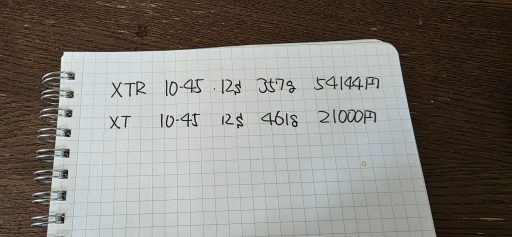 XTR 10-45 12s 357g 54144円
XT 10-45 12s 461g 21000円